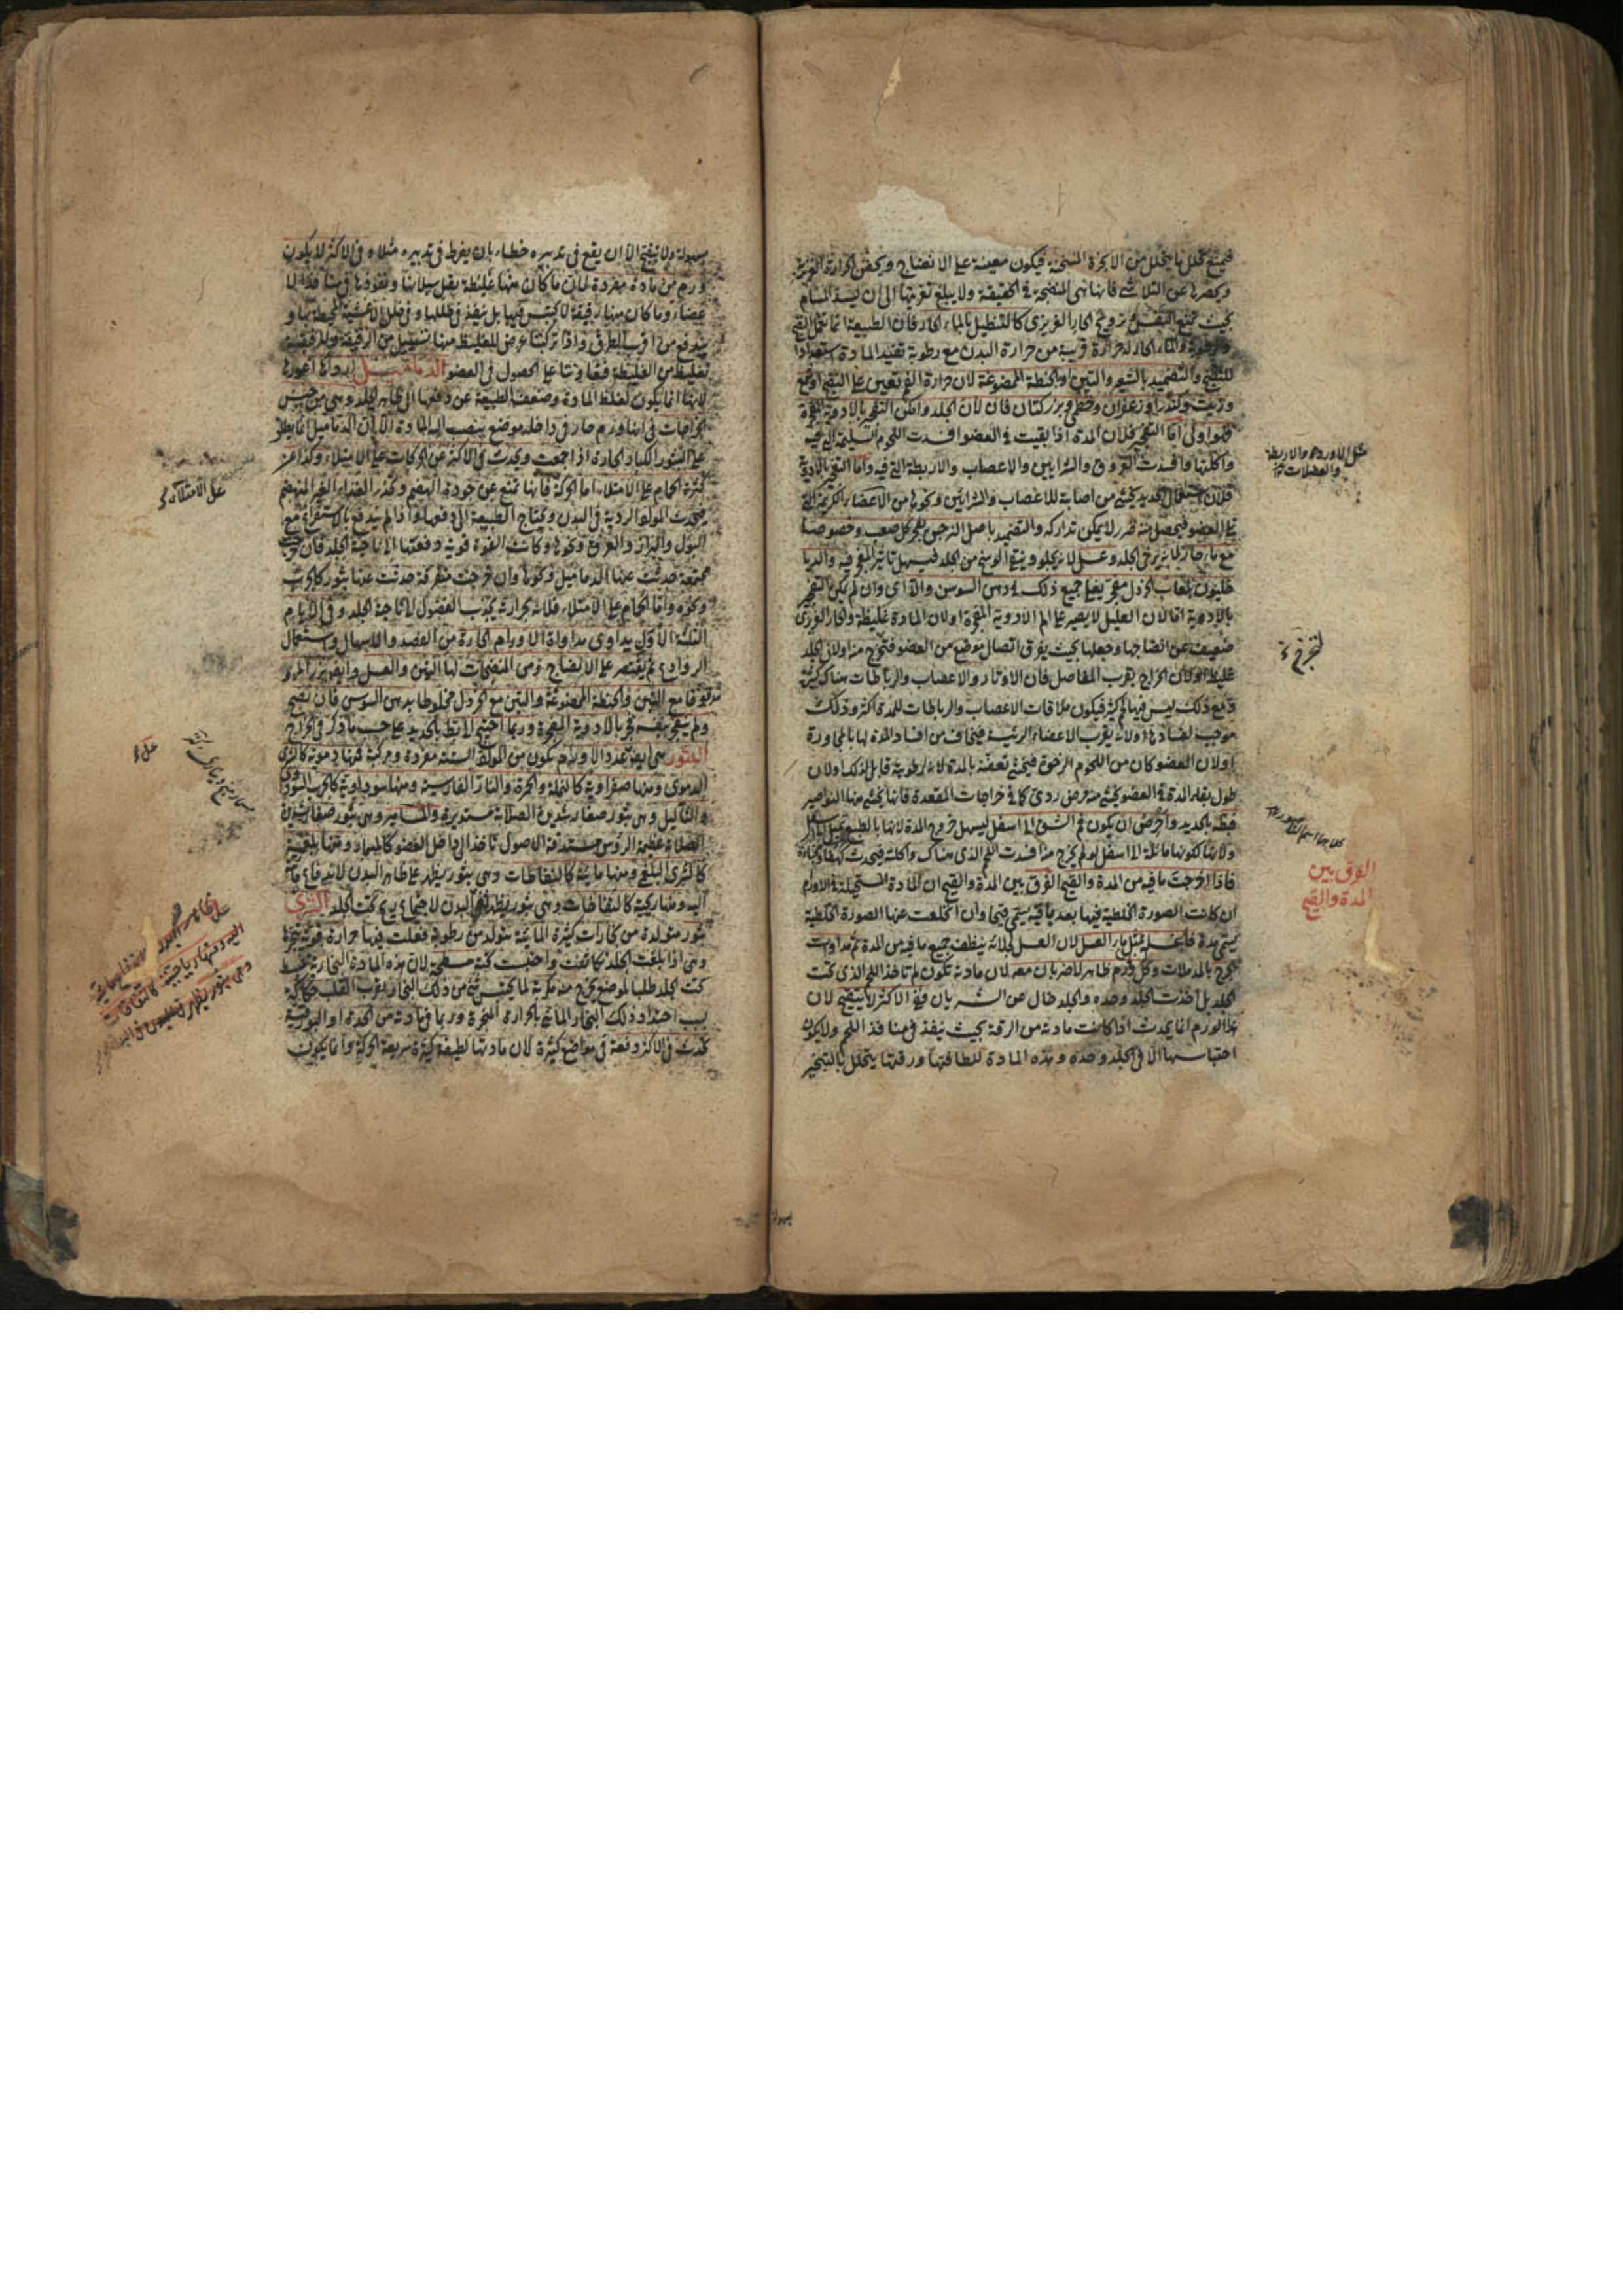 فيمنع تحلل ما يتحلل من الابخرة المسخنة فيكون معينة على الانضاج ويحقن الحرارة الغريزية
ويحصرها عن التلاشي فانها هي المنضجة في الحقيقة ولا يبلغ تغريتها الى ان يسد المسام
بحيث يمنع التنفس وترويح الحار الغريزي كالتنطيل بالماء الحار فان الطبيعة انما تحيل القيح
والماء الحار له حرارة قريبة من حرارة البدن مع رطوبة تفيد المادة استعدادا
للنضج والتضميد بالشعير والتين او بالحنطة الممضوغة لان حرارة الفم تعين على النضج
وزيت وكندر او زعفران وخطمي وبزر كتان فان لان الجلد وامكن التفجير بالادوية المفجرة
فهو اولى اما التفجير فلان المدة اذا بقيت في العضو افسدت اللحوم السليمة التي فيه
واكلتها وافسدت العروق والشرايين والاعصاب والاربطة التي فيه واما التفجير بالادوية
فلان استعمال الحديد يخشى من اصابة للاعصاب والشرايين ونحوها من الاعضاء الكريمة التي
في العضو فيحصل منه ضرر لا يمكن تداركه والتضميد باصل النرجس يفجر كل صعب وخصوصا
مع ماء حار لانه يرخي الجلد وعسل لانه يجلو وينقي الوسخ من الجلد فيسهل تاثير المفجر فيه والديا
خليون بلعاب الخردل مفجر يفعل جميع ذلك في دهن السوسن والآس وان لم يكن التفجير
بالادوية اما لان العليل لا يصبر على الم الادوية المفجرة او لان المادة غليظة والحار الغريزي
ضعيف عن انضاجها وجعلها بحيث يفرق اتصال موضع من العضو فتخرج منه او لان الجلد
غليظ او لان الخراج بقرب المفاصل فان الاوتار والاعصاب والرباطات هناك كثيرة
ومع ذلك ليس فيها لحم كثير فيكون ملاقات الاعصاب والرباطات للمدة اكثر وذلك
موجب لفسادها او لانه بقرب الاعضاء الرئيسة فيخاف من افساد المدة لها بالمجاورة
او لان العضو كان من اللحوم الرخوة فيخشى تعفنه بالمدة لانه لرطوبته قابل لذلك او لان
طول بقاء المدة في العضو يخشى منه مرض ردي كما في خراجات المقعدة فانها يخشى منها النواصير
فبطه بالحديد واحرص ان يكون فم الشق الى اسفل ليسهل خروج المدة لانها بالطبع تميل الى اسفل
ولانها لكونها مائلة الى اسفل لو لم يخرج منه افسدت اللحم الذي هناك واكلته فيحدث كهفا
فاذا اخرجت ما فيه من المدة والقيح الفرق بين المدة والقيح ان المادة المستحيلة في الاورام
ان كانت الصورة الخلطية فيها بعد باقية يسمى قيحا وان انخلعت عنها الصورة الخلطية
يسمى مدة فاغسله بمثل ماء العسل لان العسل لجلائه ينظف جميع ما فيه من المدة ثم مداوات
الجرح بالمدملات وكل ورم ظاهر لا ضربان معه لان مادته تكون لم تاخذ اللحم الذي تحت
الجلد بل اخذت الجلد وحده والجلد خال عن الشريان ففي الاكثر لا يتقيح لان
هذا الورم انما يحدث اذا كانت مادته من الرقة بحيث تنفذ في منافذ اللحم ولا يكون
احتباسها الا في الجلد وحده وهذه المادة للطافتها ورقتها يتحلل بالتبخير
مثل الاوردة والاربطة
والعضلات
لتخرج
الفرق بين
المدة والقيح
بسهولة
بسهولة ولا يتقيح الا ان يقع في تدبيره خطاء بان يفرط في تدبيره مثلا وفي الاكثر لا يكون
ورم من مادة مفردة لان ما كان منها غليظة يقل سيلانها ونفوذها في منافذ الا
عضاء وما كان منها رقيقة لا يحتبس فيها بل ينفذ في خللها وفي خلل الاغشية المحيطة بها و
يندفع من اقرب الطرق واذا تركبتا عرض للغليظة منها تسييل من الرقيقة وللرقيقة
تغليظ من الغليظة فتعاونتا على الحصول في العضو الدماميل
لانها انما يكون لغلظ المادة وضعف الطبيعة عن دفعها الى ظاهر الجلد وهي من جنس
الخراجات في انها ورم حار في داخله موضع ينصب اليه المادة الا ان الدماميل انما يطلق
على البثور الكبار الحارة اذا جمعت ويحدث في الاكثر عن الحركات على الامتلاء وكذا عن
كثرة الحمام على الامتلاء اما الحركة فانها تمنع عن جودة الهضم وتحدر الغذاء الغير المنهضم
فيحدث المواد الردية في البدن ويحتاج الطبيعة الى دفعها واذا لم يندفع بالاستفراغ مع
البول والبراز والعرق ونحوها وكانت القوة قوية دفعتها الى ناحية الجلد فان خرجت
مجتمعة حدثت عنها الدماميل ونحوها وان خرجت متفرقة حدثت عنها بثور كالجرب
ونحوه واما الحمام على الامتلاء فلانه بحرارته يجذب الفضول الى ناحية الجلد وفي الايام
الثلثة الاول يداوى مداواة الاورام الحارة من الفصد والاسهال واستعمال
الروادع ثم يقتصر على الانضاج ومن المنضجات لها التين والعسل وايضا بزر المرو
مدقوقا مع التين والحنطة الممضوغة والتين مع الخردل مخلوطا بدهن السوسن فان نضج
ولم ينفجر بنفسه فجر بالادوية المفجرة وربما احتيج الى البط بالحديد على حسب ما ذكر في الخراج
البثور هي ايضا عدد الاورام تكون من المواد الستة مفردة ومركبة فمنها دموية كالشرى
الدموي ومنها صفراوية كالنملة والجمرة والنار الفارسية ومنها سوداوية كالجرب السوداوي
والثآليل وهي بثور صغار شديدة الصلابة مستديرة والمسامير وهي بثور صغار شديدة
الصلابة عظيمة الرؤس مستدقة الاصول تاخذ الى داخل العضو كالمسمار ومنها بلغمية
كالشرى البلغمي ومنها مائية كالنفاطات وهي بثور يظهر على ظاهر البدن لاندفاع مائية
اليه ومنها ريحية كالنفاخات وهي بثور يظهر في البدن لاجتماع ريح تحت الجلد الشرى
بثور متولدة من بخارات كثيرة المائية متولد من رطوبة فعلت فيها حرارة قوية
وهي اذا بلغت الجلد تكاثفت واحتبست تحته مسطحة لان هذه المادة البخارية تنبسط
تحت الجلد طلبا لموضع يخرج منه مكربة لما يحتبس شئ من ذلك البخار بقرب القلب حكاكة
بسبب احتداد ذلك البخار المائي بالحرارة المبخرة وربما في مادته من الحدة او البورقية
يحدث في الاكثر دفعة في مواضع كثيرة لان مادتها لطيفة كثيرة سريعة الحركة وانما يكون
على الامتلاء
اليه ومنها رياحية كالنفاخات